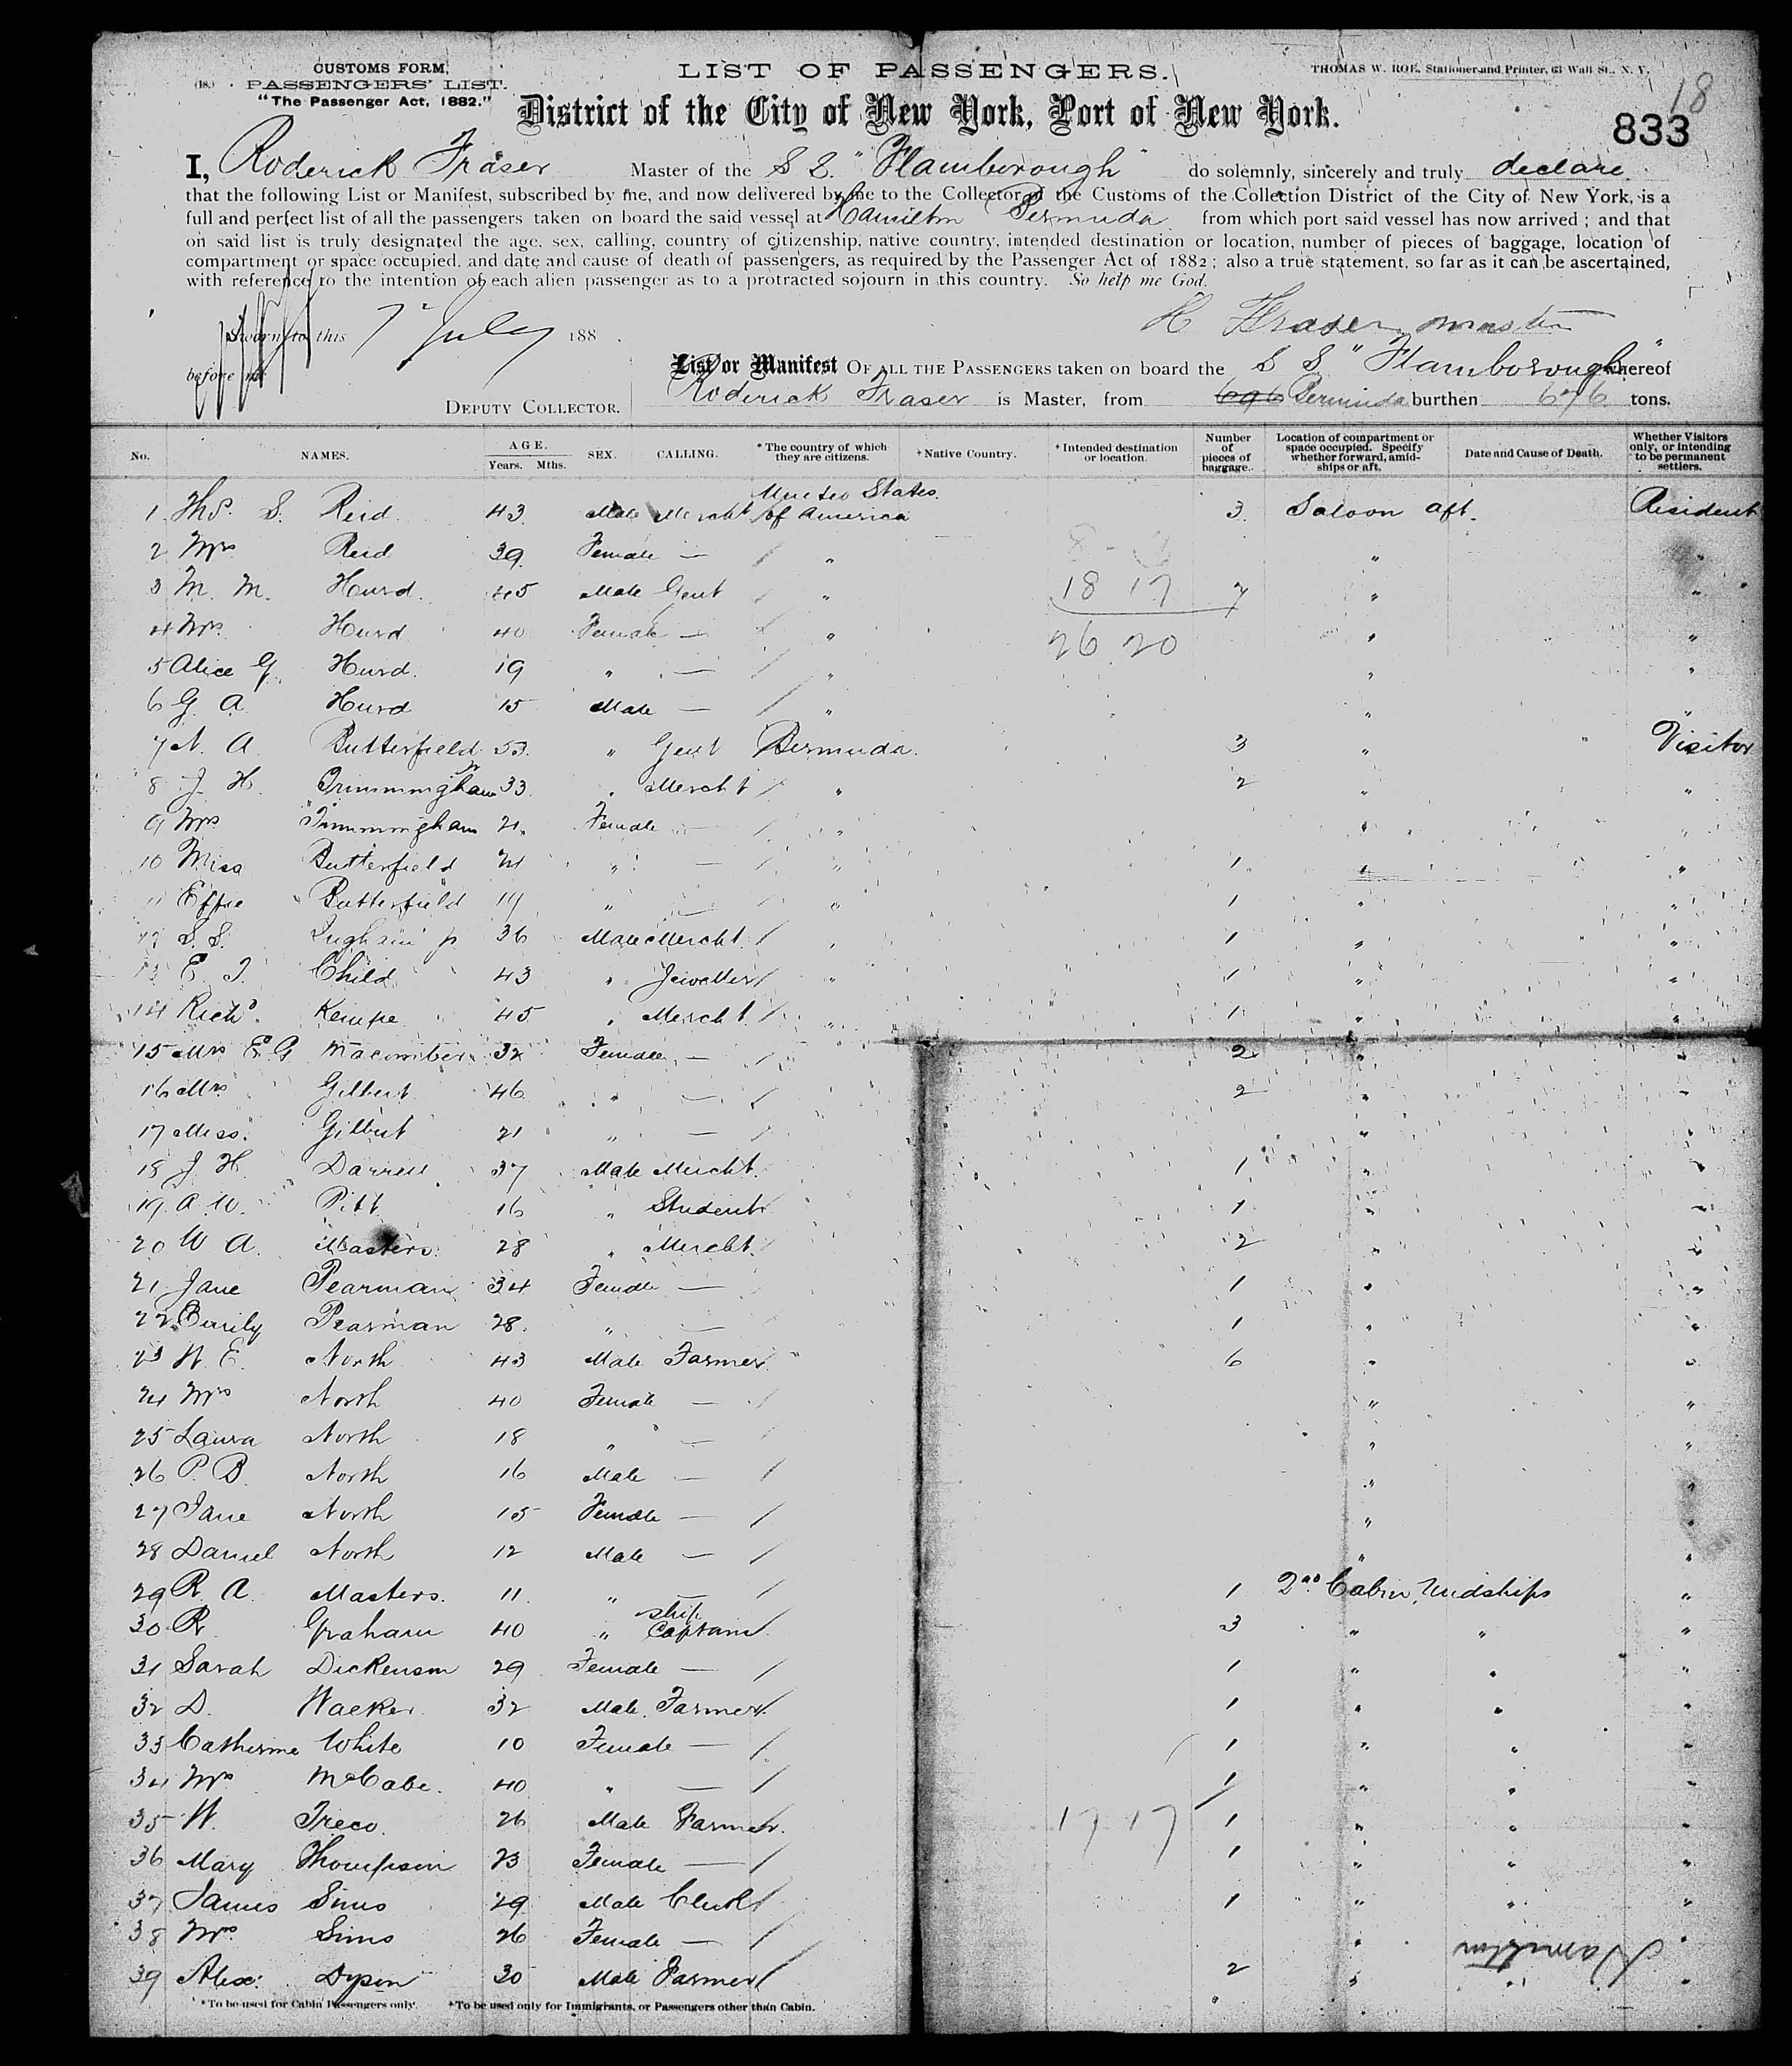 CUSTOMS FORM,
(18.) PASSENGERS' LIST.
"The Passenger Act, 1882."
LIST OF PASSENGERS.
THOMAS W. ROE, Stationer and Printer, 63 Wall St., N. Y.
18
District of the City of New York, Port of New York.
833
I, Roderick Fraser Master of the S S. "Flamborough" do solemnly, sincerely and truly declare
that the following List or Manifest, subscribed by me, and now delivered by me to the Collector of the Customs of the Collection District of the City of New York, is a
full and perfect list of all the passengers taken on board the said vessel at Hamilton Bermuda from which port said vessel has now arrived; and that
on said list is truly designated the age, sex, calling, country of citizenship, native country, intended destination or location, number of pieces of baggage, location of
compartment or space occupied, and date and cause of death of passengers, as required by the Passenger Act of 1882; also a true statement, so far as it can be ascertained,
with reference to the intention of each alien passenger as to a protracted sojourn in this country. So help me God.
Sworn to this 7" July 188 .
Fraser master
before me
List or Manifest OF ALL THE PASSENGERS taken on board the S S "Flamborough" whereof
DEPUTY COLLECTOR.
Roderick Fraser is Master, from Bermuda burthen 676 tons.
No. NAMES. AGE. Years. Mths. SEX. CALLING. *The country of which they are citizens. †Native Country. †Intended destination or location. Number of pieces of baggage. Location of compartment or space occupied. Specify whether forward, amidships or aft. Date and Cause of Death. Whether Visitors only, or intending to be permanent settlers.
1 Thos. S. Reid 43 Male Mercht United States of America 3 Saloon aft. Resident
2 Mrs Reid 39 Female — " " "
3 M. M. Hurd 45 Male Gent " 18 17 7 " "
4 Mrs Hurd 40 Female — " 26 20 " "
5 Alice G. Hurd 19 " — " " "
6 G A Hurd 15 Male — " " "
7 N. A Butterfield 53 " Gent Bermuda 3 " Visitor
8 J. H. Trimmingham Jr 33 " Mercht " 2 " "
9 Mrs Trimmingham 21 Female — " " "
10 Miss Butterfield 21 " — " 1 " "
11 Effie Butterfield 19 " — " 1 " "
12 S. S. Ingham jr 36 Male Mercht " 1 " "
13 E. J. Child 43 " Jeweller " 1 " "
14 Richd. Kempe 45 " Mercht " 1 " "
15 Mrs E G Macomber 32 Female — 2 " "
16 Mrs Gilbert 46 " — 2 " "
17 Miss Gilbert 21 " — " "
18 J. H. Darrell 37 Male Mercht 1 " "
19 A W. Pitt 16 " Student 1 " "
20 W A. Masters 28 " Mercht. 2 " "
21 Jane Pearman 34 Female — 1 " "
22 Emily Pearman 28 " — 1 " "
23 W. E. North 43 Male Farmer 6 " "
24 Mrs North 40 Female — " "
25 Laura North 18 " — " "
26 P. B. North 16 Male — " "
27 Jane North 15 Female — " "
28 Daniel North 12 Male — " "
29 R. A. Masters 11 " — 1 2nd Cabin, Midships "
30 R Graham 40 " Ship Captain 3 " " "
31 Sarah Dickenson 29 Female — 1 " " "
32 D. 32 Male Farmer 1 " " "
33 Catherine White 10 Female — 1 " " "
34 Mrs McCabe 40 " — 1 " " "
35 W. Treco 26 Male Farmer 17 17 1 " " "
36 Mary Thompson 23 Female — 1 " " "
37 James Sims 29 Male Clerk 1 " " "
38 Mrs Sims 26 Female — " "
39 Alex: Dyson 30 Male Farmer 2 " " "
Hamilton
*To be used for Cabin Passengers only. †To be used only for Immigrants, or Passengers other than Cabin.